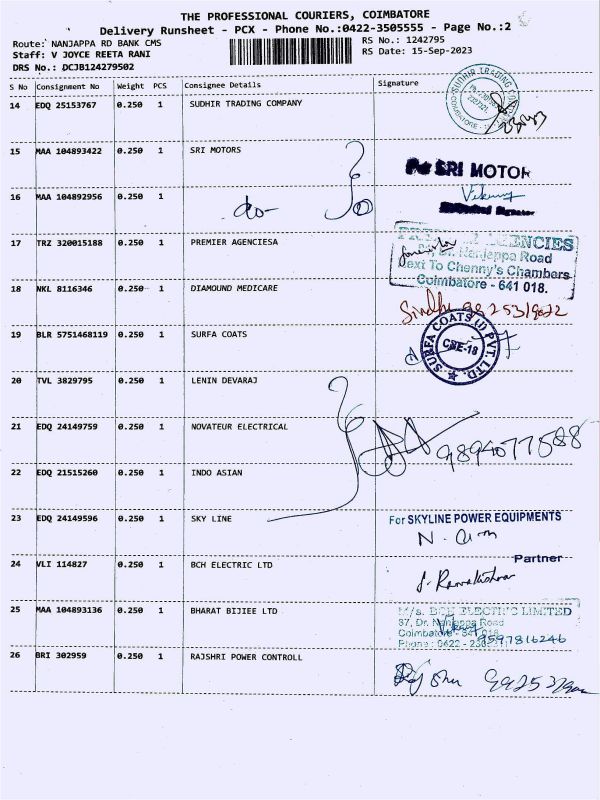 THE PROFESSIONAL COURIERS, COIMBATORE
Delivery Runsheet - PCX - Phone No.:0422-3505555 - Page No.:2
Route: NANJAPPA RD BANK CMS RS No.: 1242795
Staff: V JOYCE REETA RANI RS Date: 15-Sep-2023
DRS No.: DCJB124279502
S No Consignment No Weight PCS Consignee Details Signature
14 EDQ 25153767 0.250 1 SUDHIR TRADING COMPANY
SUDHIR TRADING
COIMBATORE
15 MAA 104893422 0.250 1 SRI MOTORS
SRI MOTOR
16 MAA 104892956 0.250 1 -do-
17 TRZ 320015188 0.250 1 PREMIER AGENCIESA
AGENCIES
Nanjappa Road
Next To Chenny's Chambers
Coimbatore - 641 018.
18 NKL 8116346 0.250 1 DIAMOUND MEDICARE
19 BLR 5751468119 0.250 1 SURFA COATS
SURFA COATS (I) PVT. LTD.
CBE-18
20 TVL 3829795 0.250 1 LENIN DEVARAJ
21 EDQ 24149759 0.250 1 NOVATEUR ELECTRICAL
9894077588
22 EDQ 21515260 0.250 1 INDO ASIAN
23 EDQ 24149596 0.250 1 SKY LINE
For SKYLINE POWER EQUIPMENTS
Partner
24 VLI 114827 0.250 1 BCH ELECTRIC LTD
25 MAA 104893136 0.250 1 BHARAT BIJIEE LTD
M/s. BCH ELECTRIC LIMITED
87, Dr. Nanjappa Road
Coimbatore - 641 018
Phone : 0422 -
9597816246
26 BRI 302959 0.250 1 RAJSHRI POWER CONTROLL